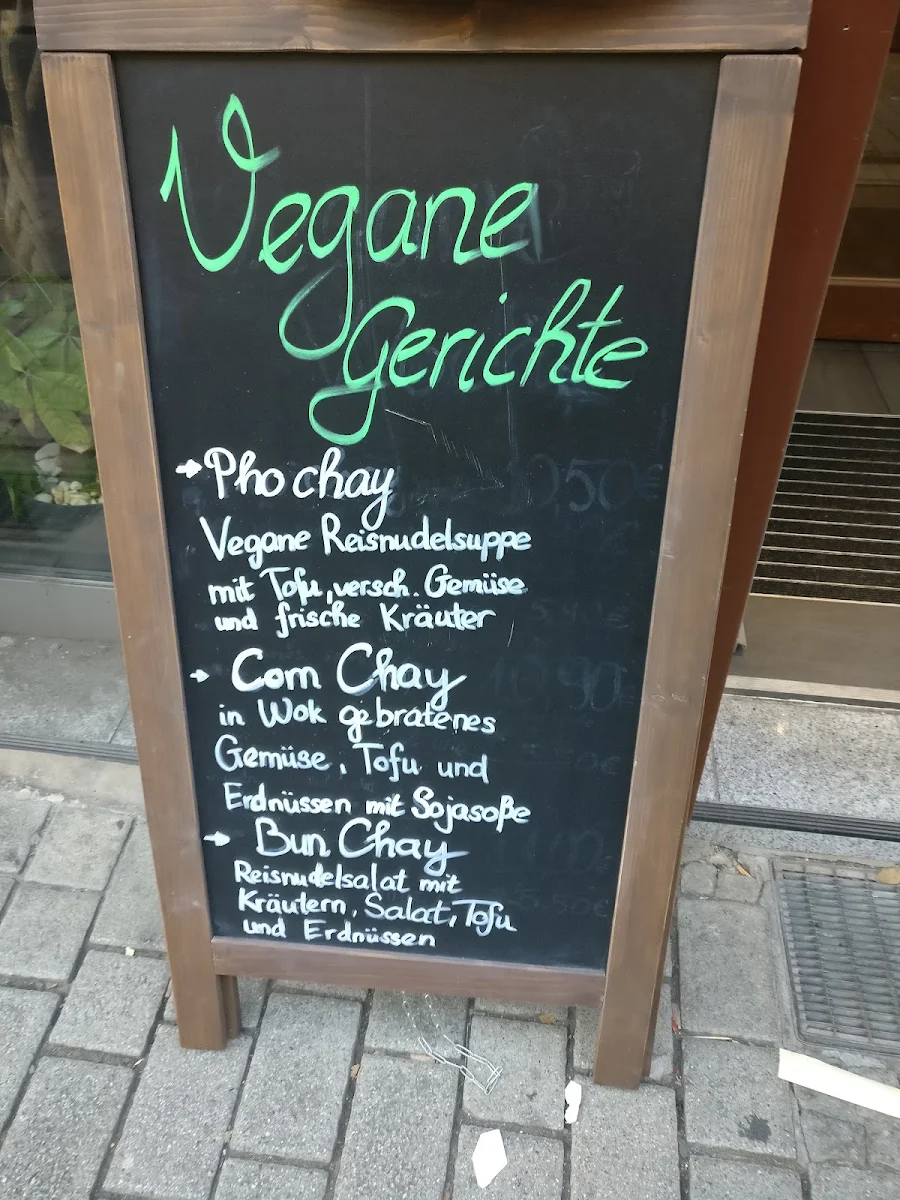 Vegane
Gerichte
Pho chay
Vegane Reisnudelsuppe
mit Tofu, versch. Gemüse
und frische Kräuter
Com Chay
in Wok gebratenes
Gemüse, Tofu und
Erdnüssen mit Sojasoße
Bun Chay
Reisnudelsalat mit
Kräutern, Salat, Tofu
und Erdnüssen